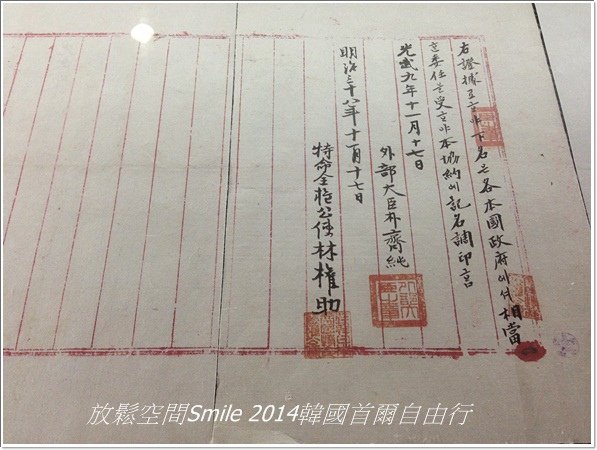 右證據로ᄒᆞ야下名은各本國政府에셔相當
ᄒᆞᆫ委任을受ᄒᆞ야本協約에記名調印홈
光武九年十一月十七日
外部大臣朴齊純
明治三十八年十一月十七日
特命全權公使林權助
放鬆空間Smile 2014韓國首爾自由行